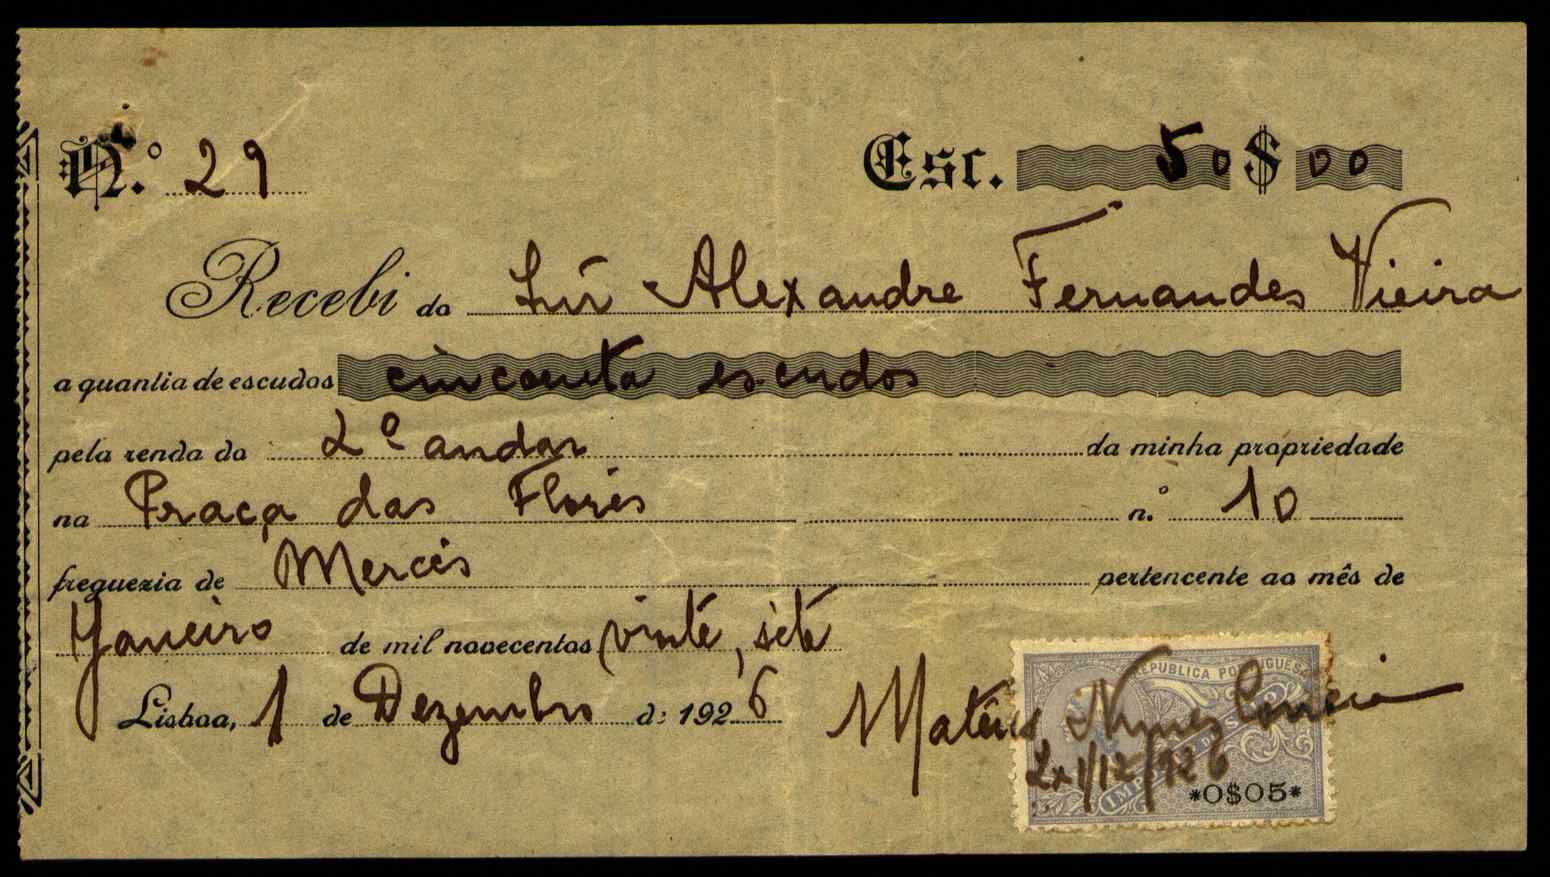 N.º 29 Esc. 50$00
Recebi do Luís Alexandre Fernandes Vieira
a quantia de escudos cincoenta escudos
pela renda do 2º andar da minha propriedade
na Praça das Flores n.º 10
freguezia de Mercês pertencente ao mês de
Janeiro de mil novecentos vinte, sete
Lisboa, 1 de Dezembro de 1926
Mateus Nunes Correia
REPUBLICA PORTUGUESA
Lx 1/12/926
*0$05*